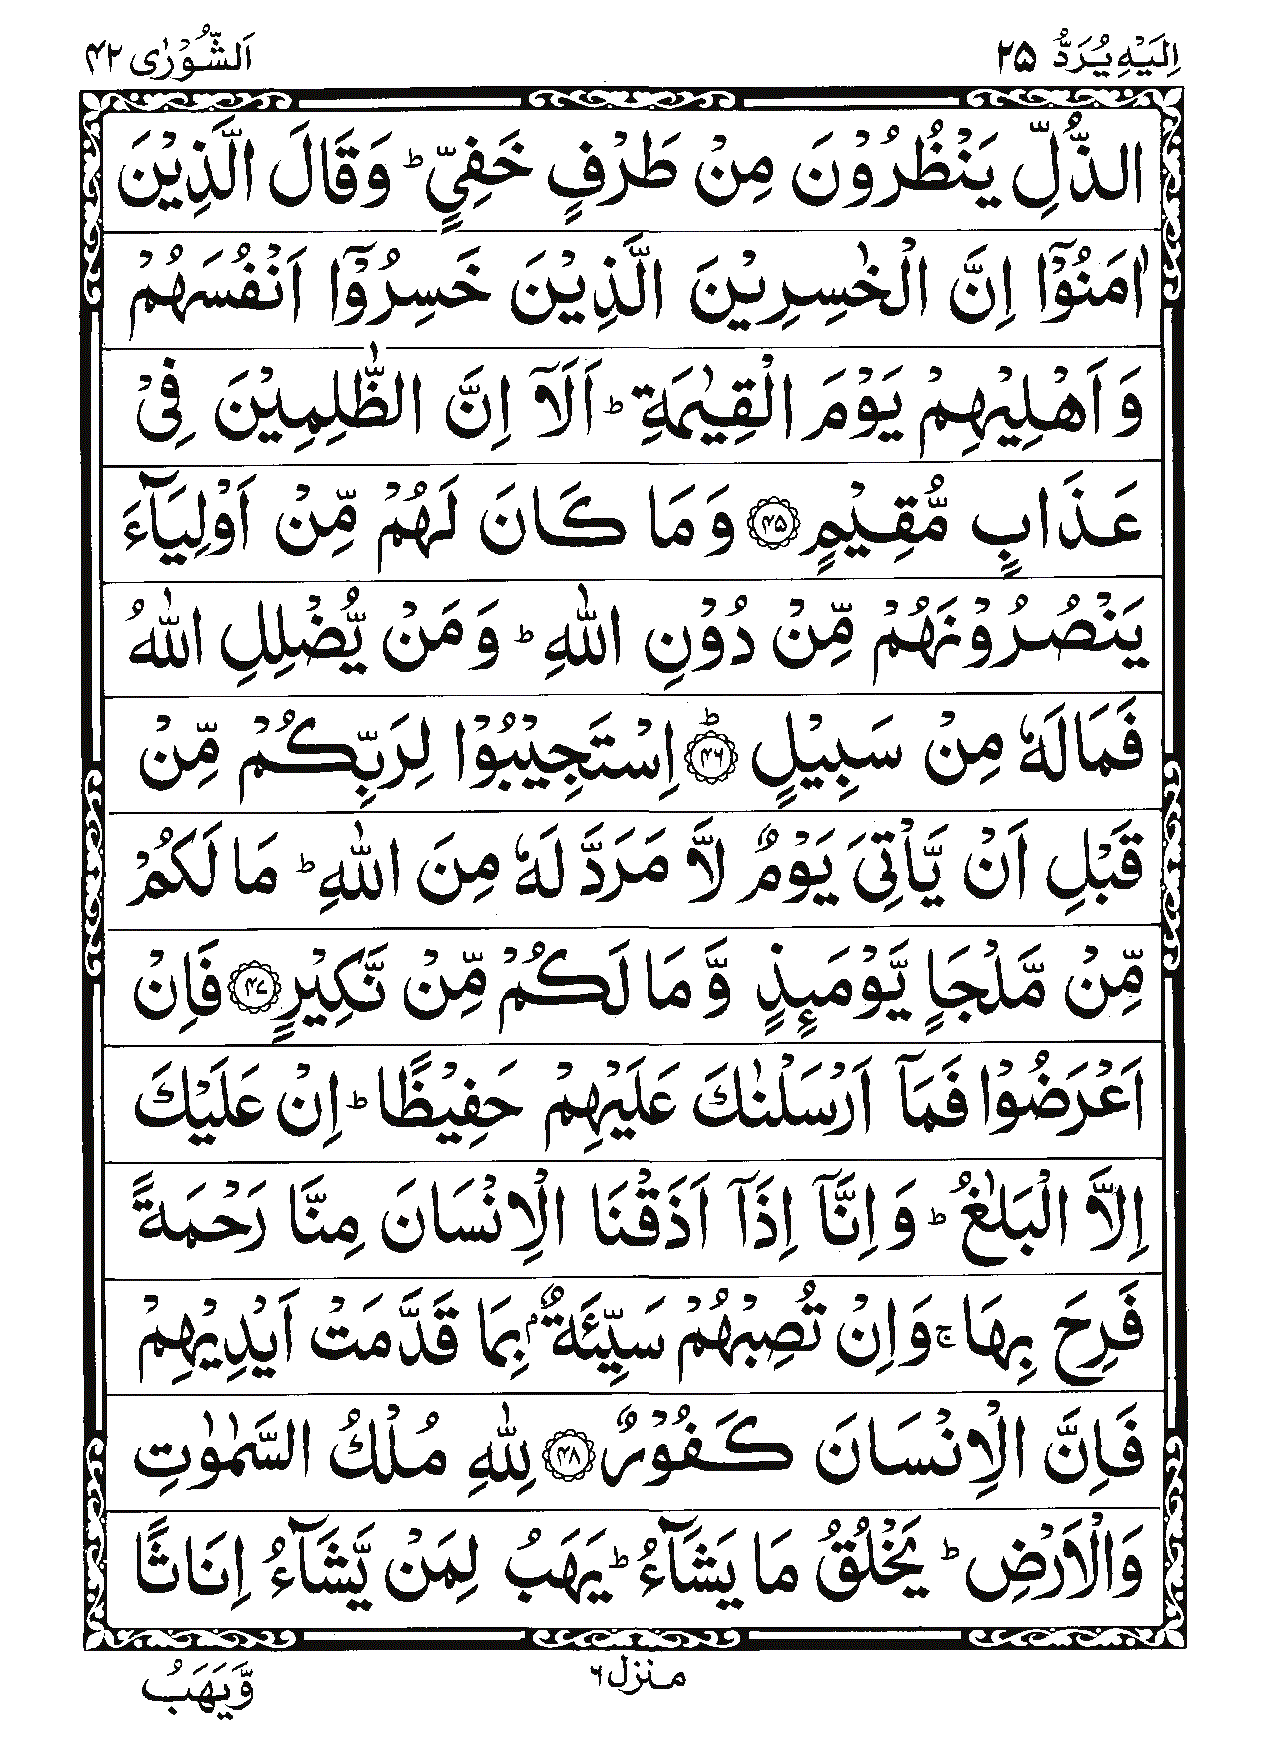 اِلَيْهِ يُرَدُّ ۲۵ اَلشُّوْرٰى ۴۲
الذُّلِّ يَنْظُرُوْنَ مِنْ طَرْفٍ خَفِيٍّ ؕ وَقَالَ الَّذِيْنَ
اٰمَنُوْۤا اِنَّ الْخٰسِرِيْنَ الَّذِيْنَ خَسِرُوْۤا اَنْفُسَهُمْ
وَاَهْلِيْهِمْ يَوْمَ الْقِيٰمَةِ ؕ اَلَاۤ اِنَّ الظّٰلِمِيْنَ فِىْ
عَذَابٍ مُّقِيْمٍ ﴿۴۵﴾ وَمَا كَانَ لَهُمْ مِّنْ اَوْلِيَآءَ
يَنْصُرُوْنَهُمْ مِّنْ دُوْنِ اللّٰهِ ؕ وَمَنْ يُّضْلِلِ اللّٰهُ
فَمَا لَهٗ مِنْ سَبِيْلٍ ؕ﴿۴۶﴾ اِسْتَجِيْبُوْا لِرَبِّكُمْ مِّنْ
قَبْلِ اَنْ يَّاْتِىَ يَوْمٌ لَّا مَرَدَّ لَهٗ مِنَ اللّٰهِ ؕ مَا لَكُمْ
مِّنْ مَّلْجَاٍ يَّوْمَئِذٍ وَّمَا لَكُمْ مِّنْ نَّكِيْرٍ ﴿۴۷﴾ فَاِنْ
اَعْرَضُوْا فَمَاۤ اَرْسَلْنٰكَ عَلَيْهِمْ حَفِيْظًا ؕ اِنْ عَلَيْكَ
اِلَّا الْبَلٰغُ ؕ وَاِنَّاۤ اِذَاۤ اَذَقْنَا الْاِنْسَانَ مِنَّا رَحْمَةً
فَرِحَ بِهَا ۚ وَاِنْ تُصِبْهُمْ سَيِّئَةٌۢ بِمَا قَدَّمَتْ اَيْدِيْهِمْ
فَاِنَّ الْاِنْسَانَ كَفُوْرٌ ﴿۴۸﴾ لِلّٰهِ مُلْكُ السَّمٰوٰتِ
وَالْاَرْضِ ؕ يَخْلُقُ مَا يَشَآءُ ؕ يَهَبُ لِمَنْ يَّشَآءُ اِنَاثًا
منزل ۶
وَّيَهَبُ